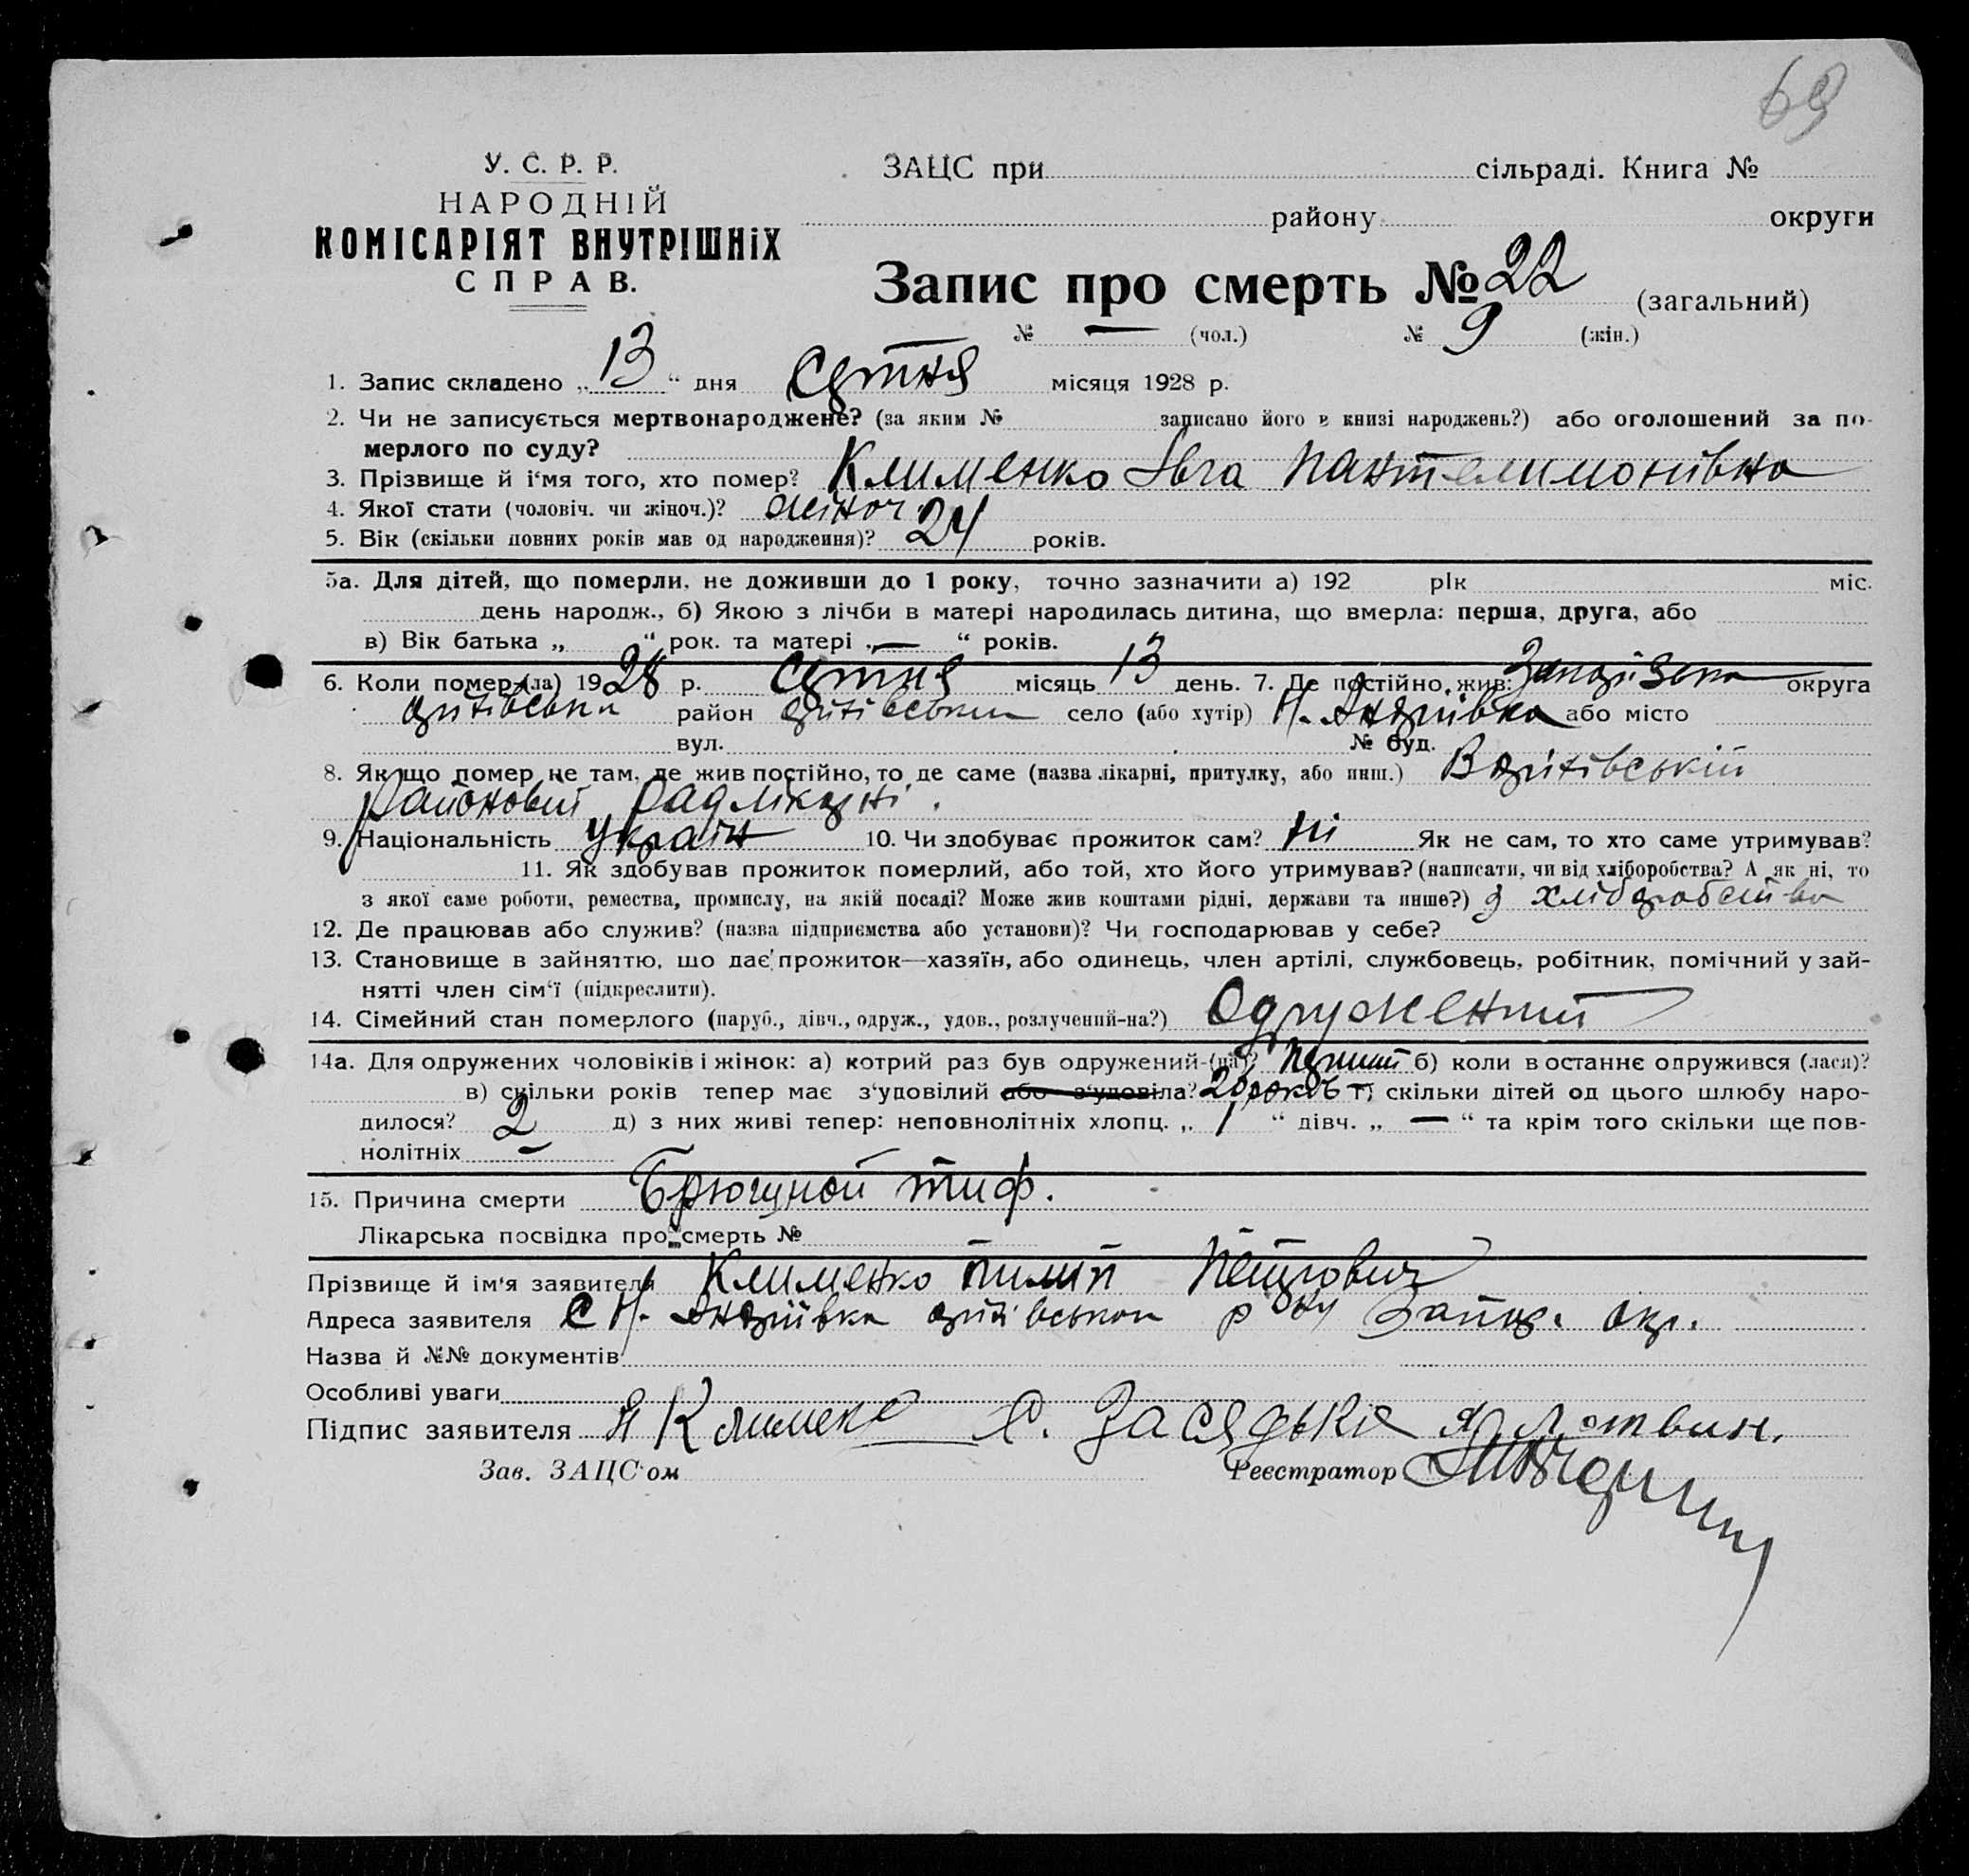 69
У. С. Р. Р.
НАРОДНІЙ
КОМІСАРІЯТ ВНУТРІШНіХ
СПРАВ.
ЗАЦС при сільраді. Книга №
району округи
Запис про смерть № 22 (загальний)
№ — (чол.) № 9 (жін.)
1. Запис складено „13“ дня місяця 1928 р.
2. Чи не записується мертвонароджене? (за яким № записано його в книзі народжень?) або оголошений за по-
мерлого по суду?
3. Прізвище й і‘мя того, хто помер? Клименко Івга Пантелимонівна
4. Якої стати (чоловіч. чи жіноч.)? жіноч.
5. Вік (скільки повних років мав од народження)? 24 років.
5а. Для дітей, що померли, не доживши до 1 року, точно зазначити а) 192 рік міс.
день народж., б) Якою з лічби в матері народилась дитина, що вмерла: перша, друга, або
в) Вік батька „ “ рок. та матері „—“ років.
6. Коли помер (ла) 1928 р. місяць 13 день. 7. Де постійно жив: округа
район село (або хутір) Н. Андріївка або місто
вул. № буд.
8. Якщо помер не там, де жив постійно, то де саме (назва лікарні, притулку, або инш.) В
районовий
9. Національність україн 10. Чи здобуває прожиток сам? ні Як не сам, то хто саме утримував?
11. Як здобував прожиток померлий, або той, хто його утримував? (написати, чи від хліборобства? А як ні, то
з якої саме роботи, ремества, промислу, на якій посаді? Може жив коштами рідні, держави та инше?) з хліборобства
12. Де працював або служив? (назва підприємства або установи)? Чи господарював у себе?
13. Становище в зайняттю, що дає прожиток—хазяїн, або одинець, член артілі, службовець, робітник, помічний у зай-
нятті член сім‘ї (підкреслити).
14. Сімейний стан померлого (паруб., дівч., одруж., удов., розлучений-на?) Одружений
14а. Для одружених чоловіків і жінок: а) котрий раз був одружений-(на)? перший б) коли востаннє одружився (лася)?
в) скільки років тепер має з‘удовілий або з‘удовіла? скільки дітей од цього шлюбу наро-
дилося? 2 д) з них живі тепер: неповнолітніх хлопц. „1“ дівч. „—“ та крім того скільки ще пов-
нолітніх —
15. Причина смерти Брюшной тиф.
Лікарська посвідка про смерть №
Прізвище й ім‘я заявителя Клименко Пилип Петрович
Адреса заявителя с Н. Андріївка р ну Запор. окр.
Назва й №№ документів
Особливі уваги
Підпис заявителя
Зав. ЗАЦС‘ом Реєстратор